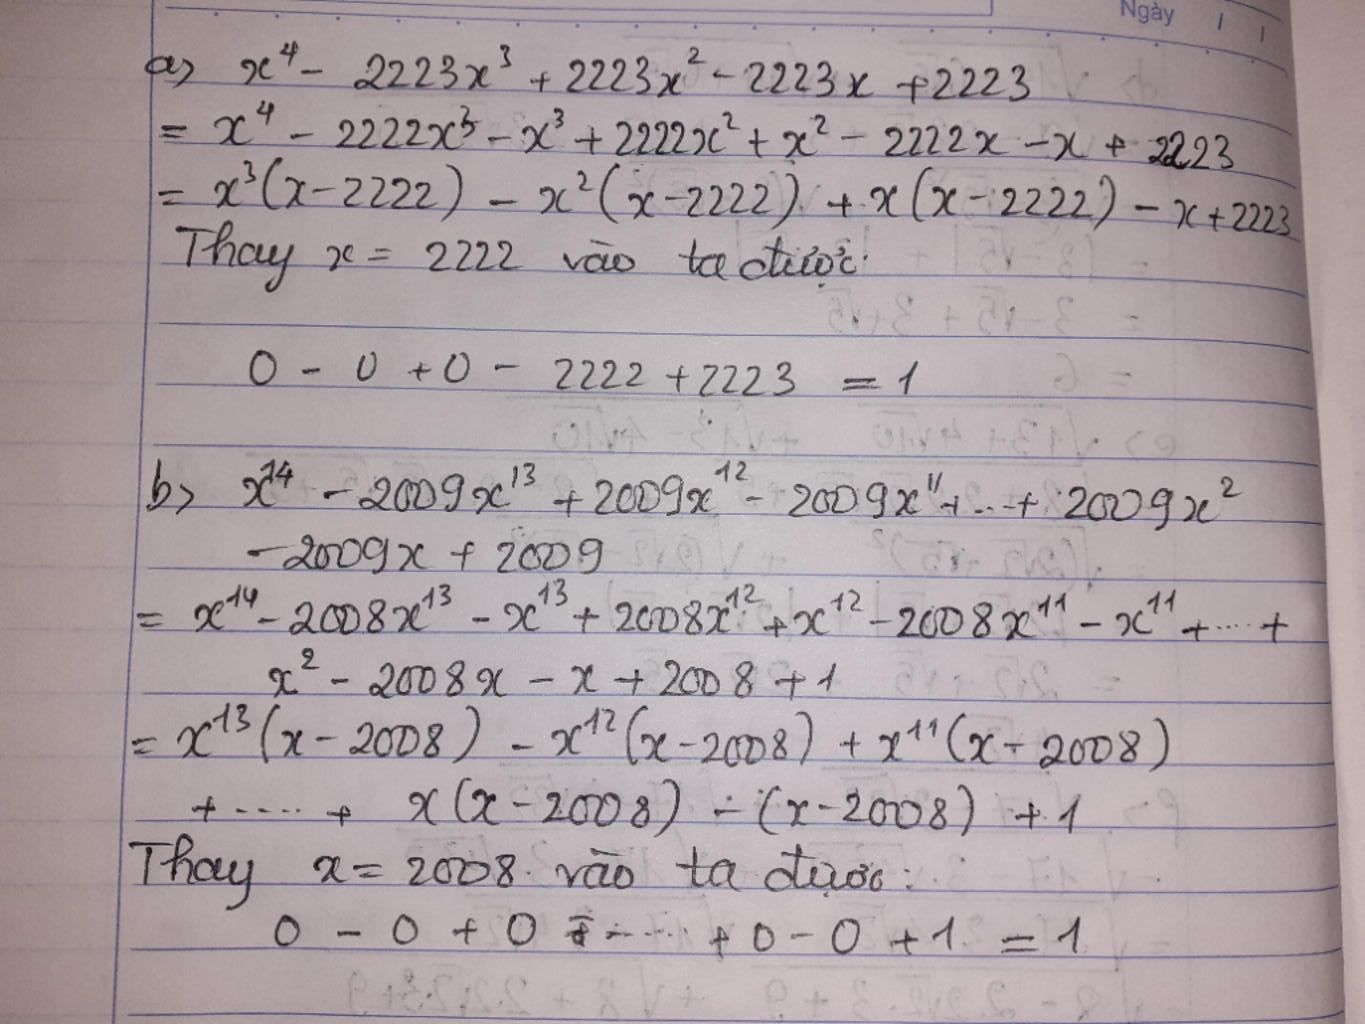 Ngày / /
a> x⁴ - 2223x³ + 2223x² - 2223x + 2223
= x⁴ - 2222x³ - x³ + 2222x² + x² - 2222x - x + 2223
= x³(x - 2222) - x²(x - 2222) + x(x - 2222) - x + 2223
Thay x = 2222 vào ta được:
0 - 0 + 0 - 2222 + 2223 = 1
b> x¹⁴ - 2009x¹³ + 2009x¹² - 2009x¹¹ + ... + 2009x²
- 2009x + 2009
= x¹⁴ - 2008x¹³ - x¹³ + 2008x¹² + x¹² - 2008x¹¹ - x¹¹ + .... +
x² - 2008x - x + 2008 + 1
= x¹³(x - 2008) - x¹²(x - 2008) + x¹¹(x - 2008)
+ ..... + x(x - 2008) - (x - 2008) + 1
Thay x = 2008 vào ta được:
0 - 0 + 0 + ..... + 0 - 0 + 1 = 1